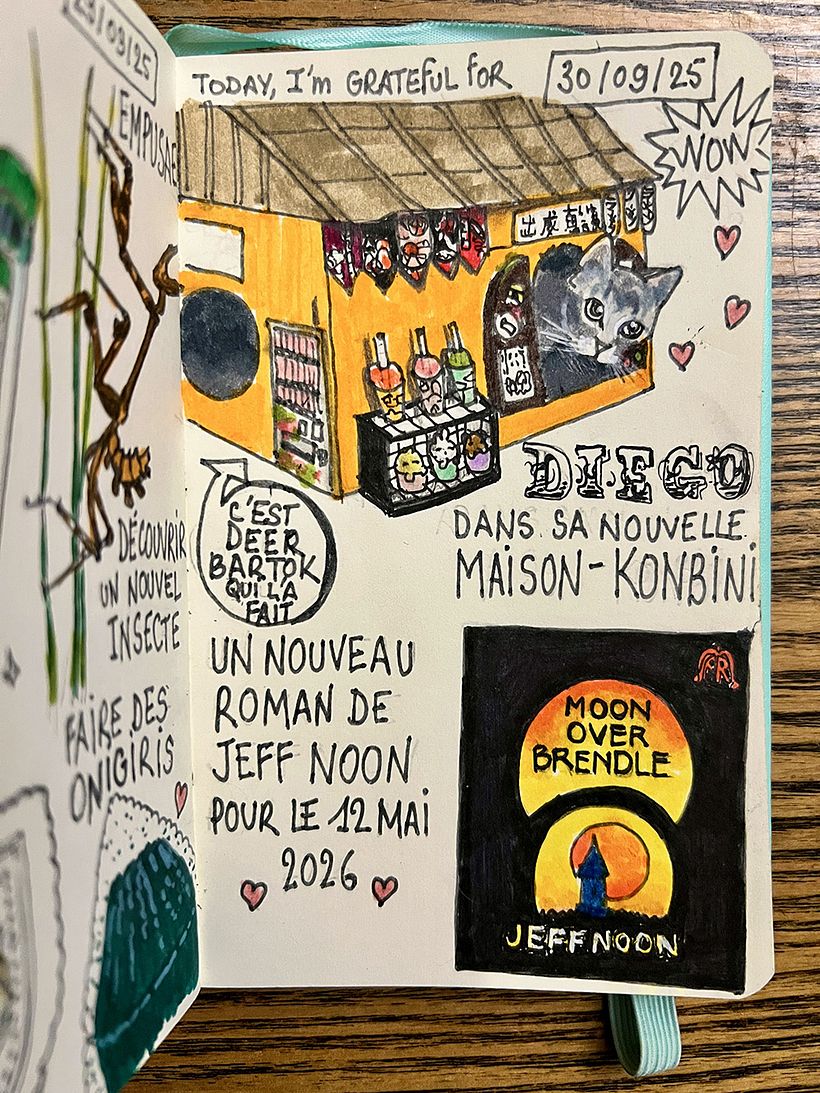 23/09/25
EMPUSAE
DÉCOUVRIR
UN NOUVEL
INSECTE
FAIRE DES
ONIGIRIS
TODAY, I'm GRATEFUL FOR
30/09/25
WOW
DIEGO
DANS SA NOUVELLE
MAISON-KONBINI
C'EST
DEER
BARTOK
QUI L'A
FAIT
UN NOUVEAU
ROMAN DE
JEFF NOON
POUR LE 12 MAI
2026
MOON
OVER
BRENDLE
JEFF NOON